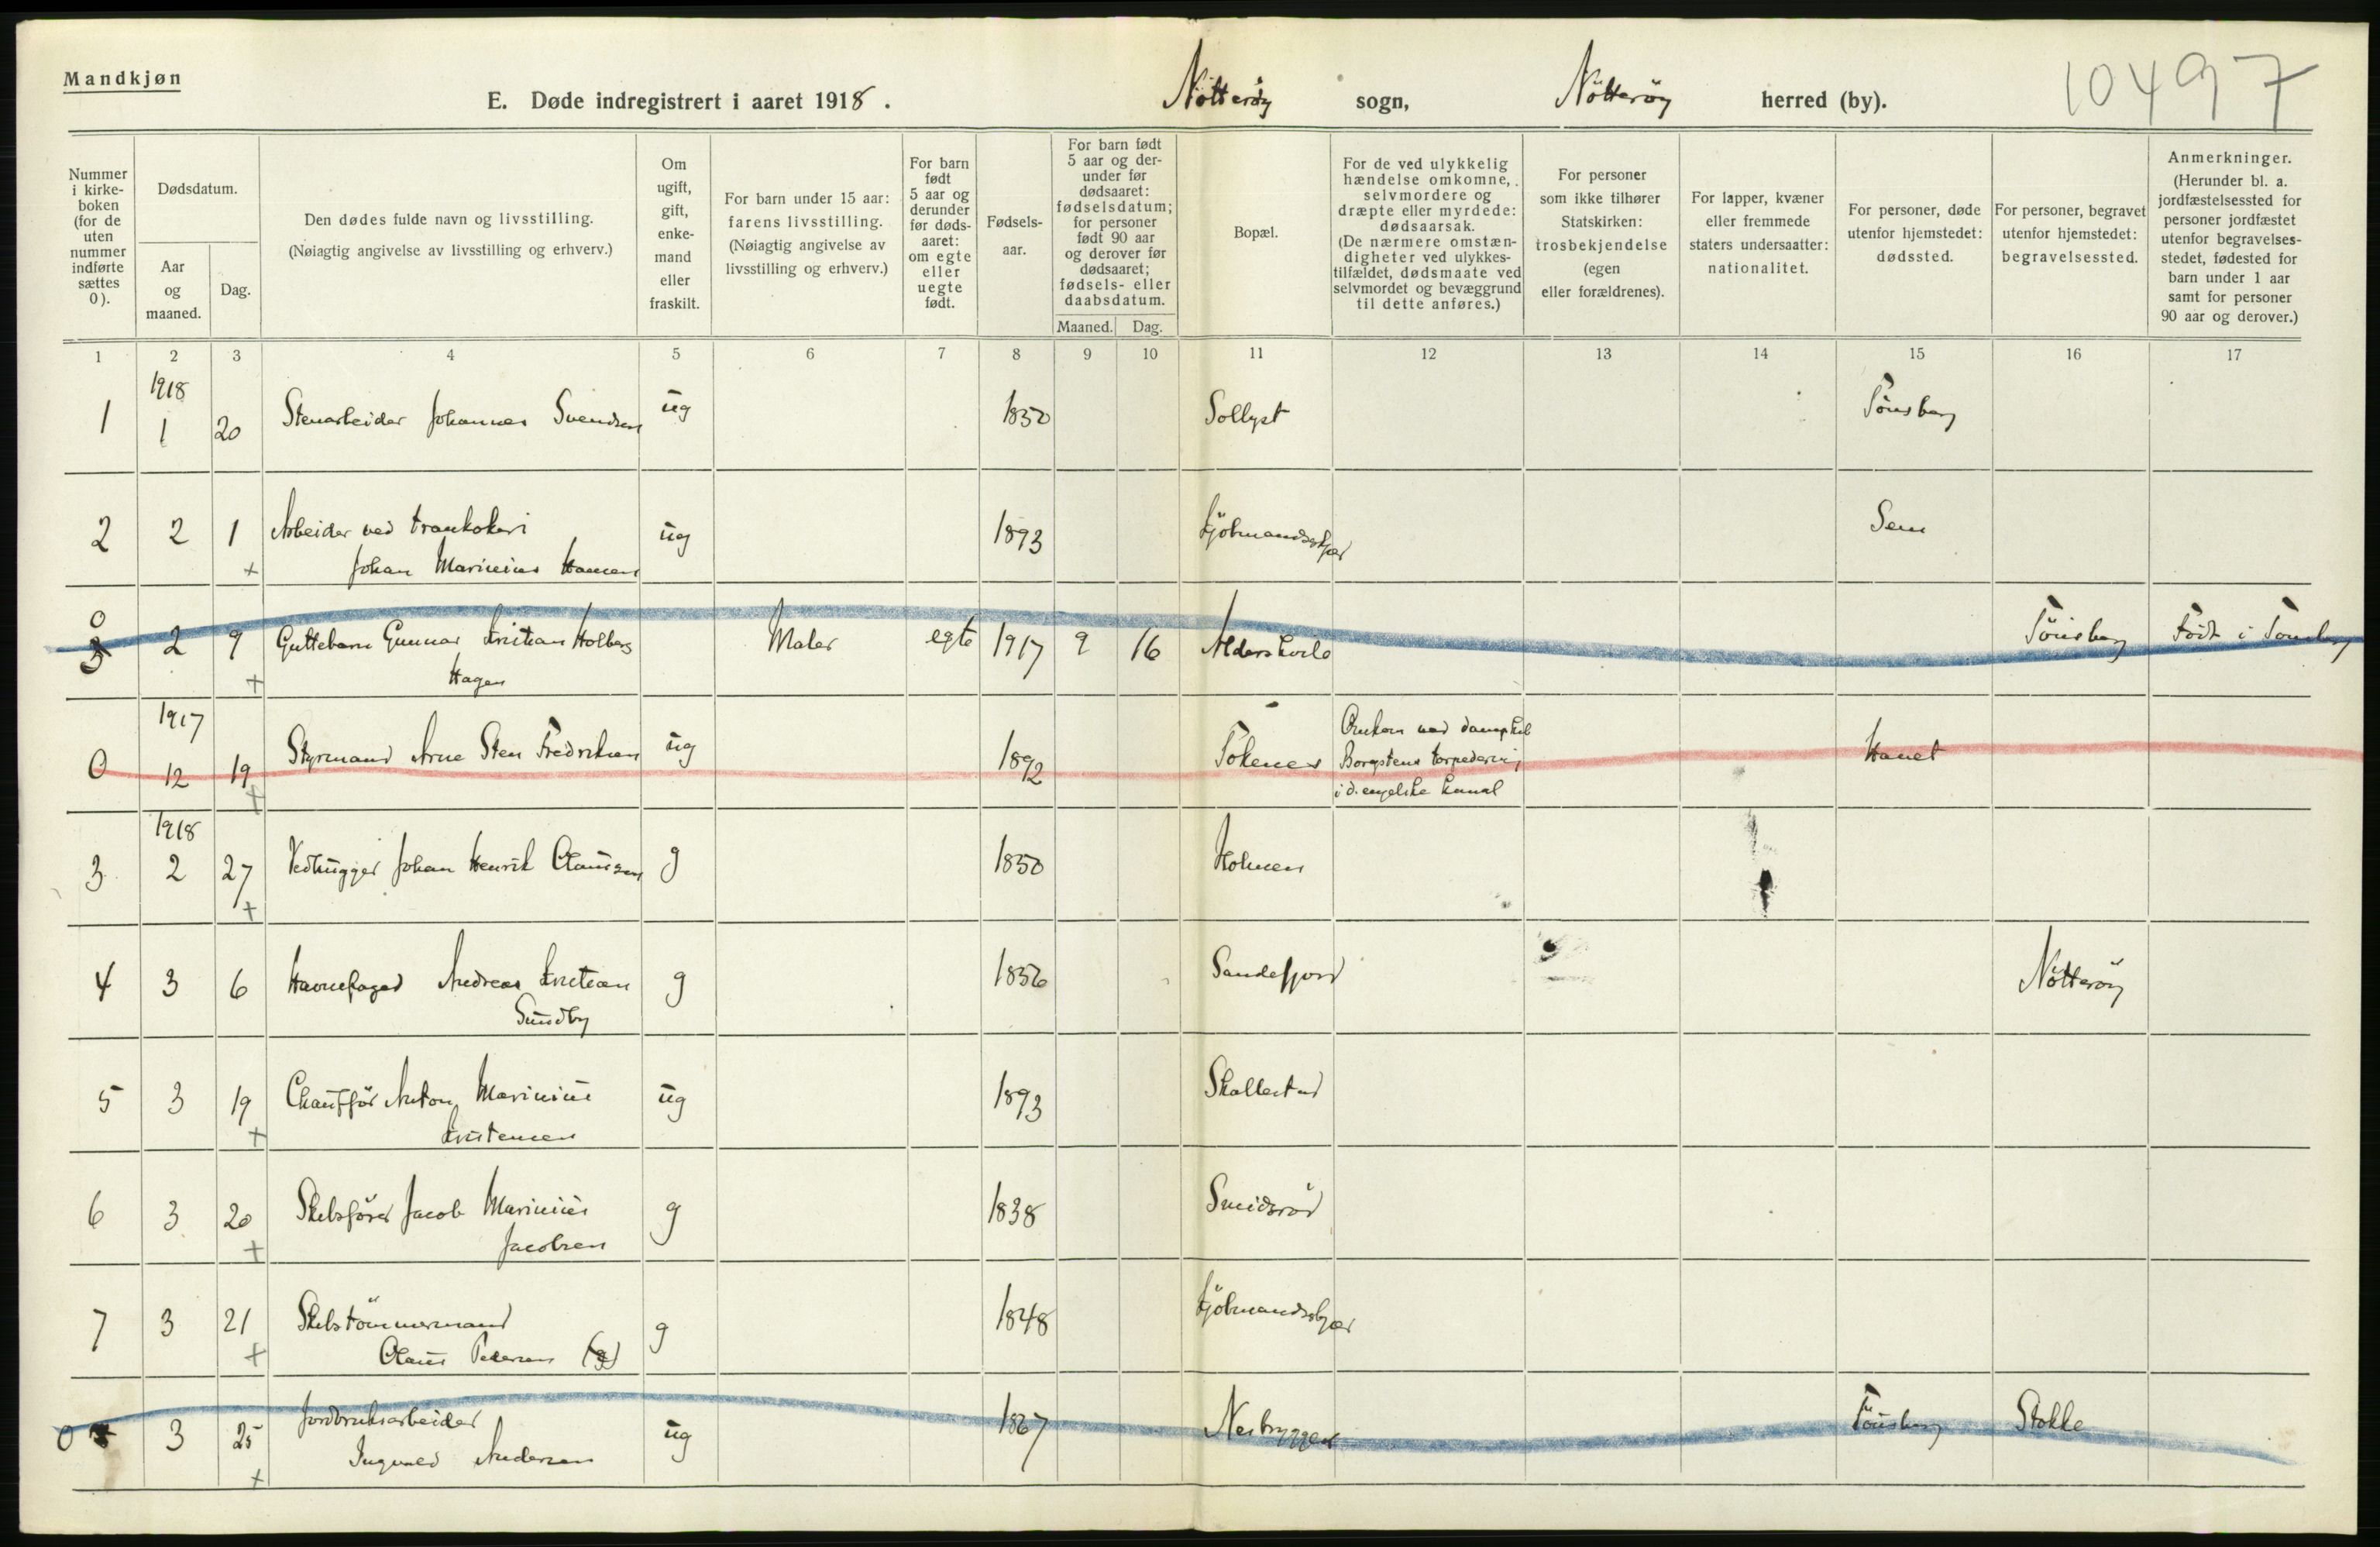 Mandkjøn
E. Døde indregistrert i aaret 1918. Nötteröy sogn, Nötteröy herred (by). 10497
Nummer i kirke-boken (for de uten nummer indførte sættes 0).
Dødsdatum.
Aar og maaned.
Dag.
Den dødes fulde navn og livsstilling.
(Nøiagtig angivelse av livsstilling og erhverv.)
Om ugift, gift, enke-mand eller fraskilt.
For barn under 15 aar: farens livsstilling.
(Nøiagtig angivelse av livsstilling og erhverv.)
For barn født 5 aar og derunder før døds-aaret: om egte eller uegte født.
Fødsels-aar.
For barn født 5 aar og der-under før dødsaaret: fødselsdatum; for personer født 90 aar og derover før dødsaaret; fødsels- eller daabsdatum.
Maaned. Dag.
Bopæl.
For de ved ulykkelig hændelse omkomne, selvmordere og dræpte eller myrdede: dødsaarsak.
(De nærmere omstæn-digheter ved ulykkes-tilfældet, dødsmaate ved selvmordet og bevæggrund til dette anføres.)
For personer som ikke tilhører Statskirken: trosbekjendelse (egen eller forældrenes).
For lapper, kvæner eller fremmede staters undersaatter: nationalitet.
For personer, døde utenfor hjemstedet: dødssted.
For personer, begravet utenfor hjemstedet: begravelsessted.
Anmerkninger.
(Herunder bl. a. jordfæstelsessted for personer jordfæstet utenfor begravelses-stedet, fødested for barn under 1 aar samt for personer 90 aar og derover.)
1 2 3 4 5 6 7 8 9 10 11 12 13 14 15 16 17
1918
1 1 20 Stenarbeider Johannes Svendsen ug 1850 Sollyst Tönsberg
2 2 1 Arbeider ved trankokeri ug 1893 Kjöbmandsskjær Sem
+ Johan Marinius Hansen
0
3 2 9 Guttebarn Gunnar Kristian Holberg Maler egte 1917 9 16 Alderskvile Tönsberg Födt i Tönsberg
+ Hagen
1917
0 12 19 Styrmand Arne Sten Fredriksen ug 1892 Tokenes Omkom ved dampskib
Borgstens torpedering
i d. engelske kanal
Havet
+
1918
3 2 27 Vedhugger Johan Henrik Clausen g 1850 Holmen
+
4 3 6 Havnefoged Andreas Kristian g 1856 Sandefjord Nötteröy
Sundby
5 3 19 Chaufför Anton Marinius ug 1893 Skallestad
+ Kristensen
6 3 20 Skibsförer Jacob Marinius g 1838 Smidsröd
+ Jacobsen
7 3 21 Skibstömmermand g 1848 Kjöbmandsskjær
+ Olaus Pedersen (g)
0 3 25 Jordbruksarbeider ug 1867 Nesbryggen Tönsberg Stokke
+ Ingvald Andersen